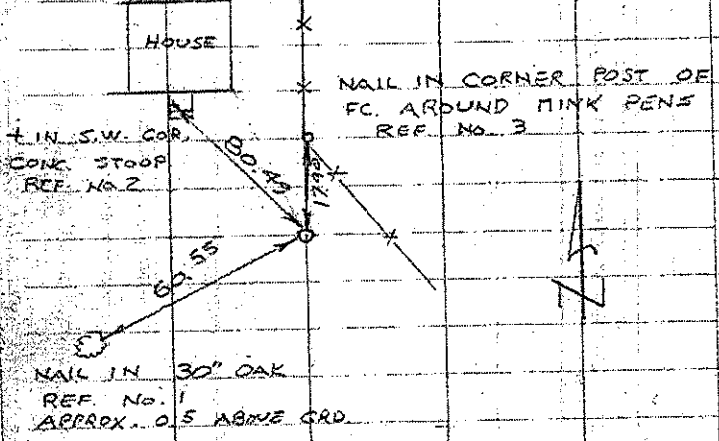 HOUSE
NAIL IN CORNER POST OF
FC. AROUND MINK PENS
REF No. 3
+ IN S.W. COR.
CONC. STOOP
REF. No. 2
80.47
17.90
60.55
NAIL IN 30" OAK
REF. No. 1
APPROX. 0.5 ABOVE GRD.